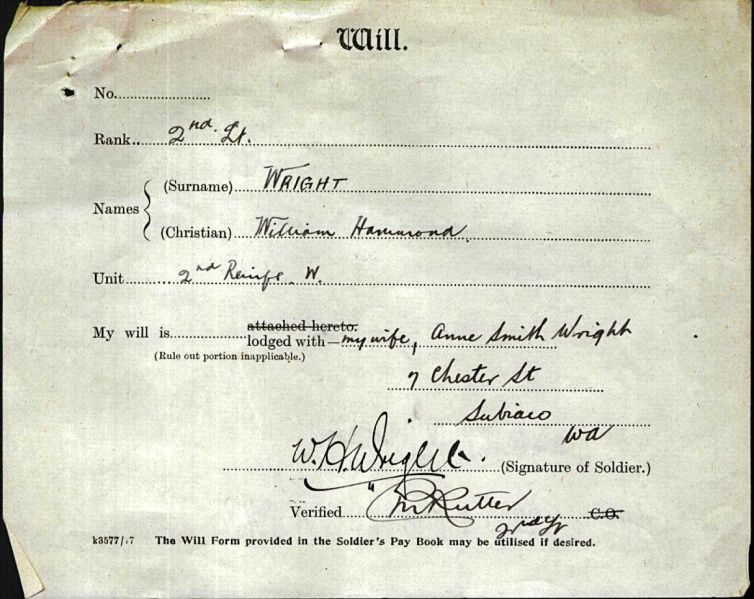 Will.
No.
Rank 2nd. Lt.
Names
(Surname) WRIGHT
(Christian) William Hammond
Unit 2nd Reinfs. W.
My will is attached hereto.
lodged with — my wife, Anne Smith Wright
(Rule out portion inapplicable.)
7 Chester St
Subiaco
WA
W. H. Wright. (Signature of Soldier.)
Verified Rutter C.O.
k3577/17 The Will Form provided in the Soldier's Pay Book may be utilised if desired.